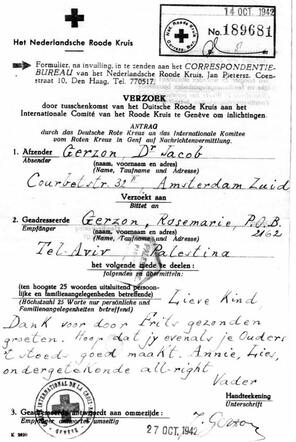 14 OCT. 1942
Het Nederlandsche Roode Kruis
No. 189681
Formulier, na invulling, in te zenden aan het CORRESPONDENTIE-
BUREAU van het Nederlandsche Roode Kruis, Jan Pietersz. Coen-
straat 10, Den Haag. Tel. 770517.
VERZOEK
door tusschenkomst van het Duitsche Roode Kruis aan het
Internationale Comité van het Roode Kruis te Genève om inlichtingen.
ANTRAG
durch das Deutsche Rote Kreuz an das Internationale Komitee
vom Roten Kreuz in Genf auf Nachrichtenvermittlung.
1. Afzender Gerzon Dr Jacob
Absender (naam, voornaam en adres)
(Name, Taufname und Adresse)
Courbetstr. 32 Amsterdam Zuid
Verzoekt aan
Bittet an
2. Geadresseerde Gerzon, Rosemarie, P.O.B.
Empfänger (naam, voornaam en adres) 2162
(Name, Taufname und Adresse)
Tel-Aviv Palestina
het volgende mede te deelen:
folgendes zu übermitteln:
(ten hoogste 25 woorden uitsluitend persoon-
lijke en familieaangelegenheden betreffend)
(Höchstzahl 25 Worte nur persönliche und
Familienangelegenheiten betreffend)
Lieve Kind
Dank voor door Frits gezonden
groeten. Hoop dat jy evenals je Ouders
't steeds goed maakt. Annie, Lies,
ondergetekende all-right.
Vader
Handteekening
Unterschrift
3. Geadresseerde antwoordt aan ommezijde:
Empfänger antwortet umseitig
J. Gerzon
27 OCT. 1942
GENÈVE